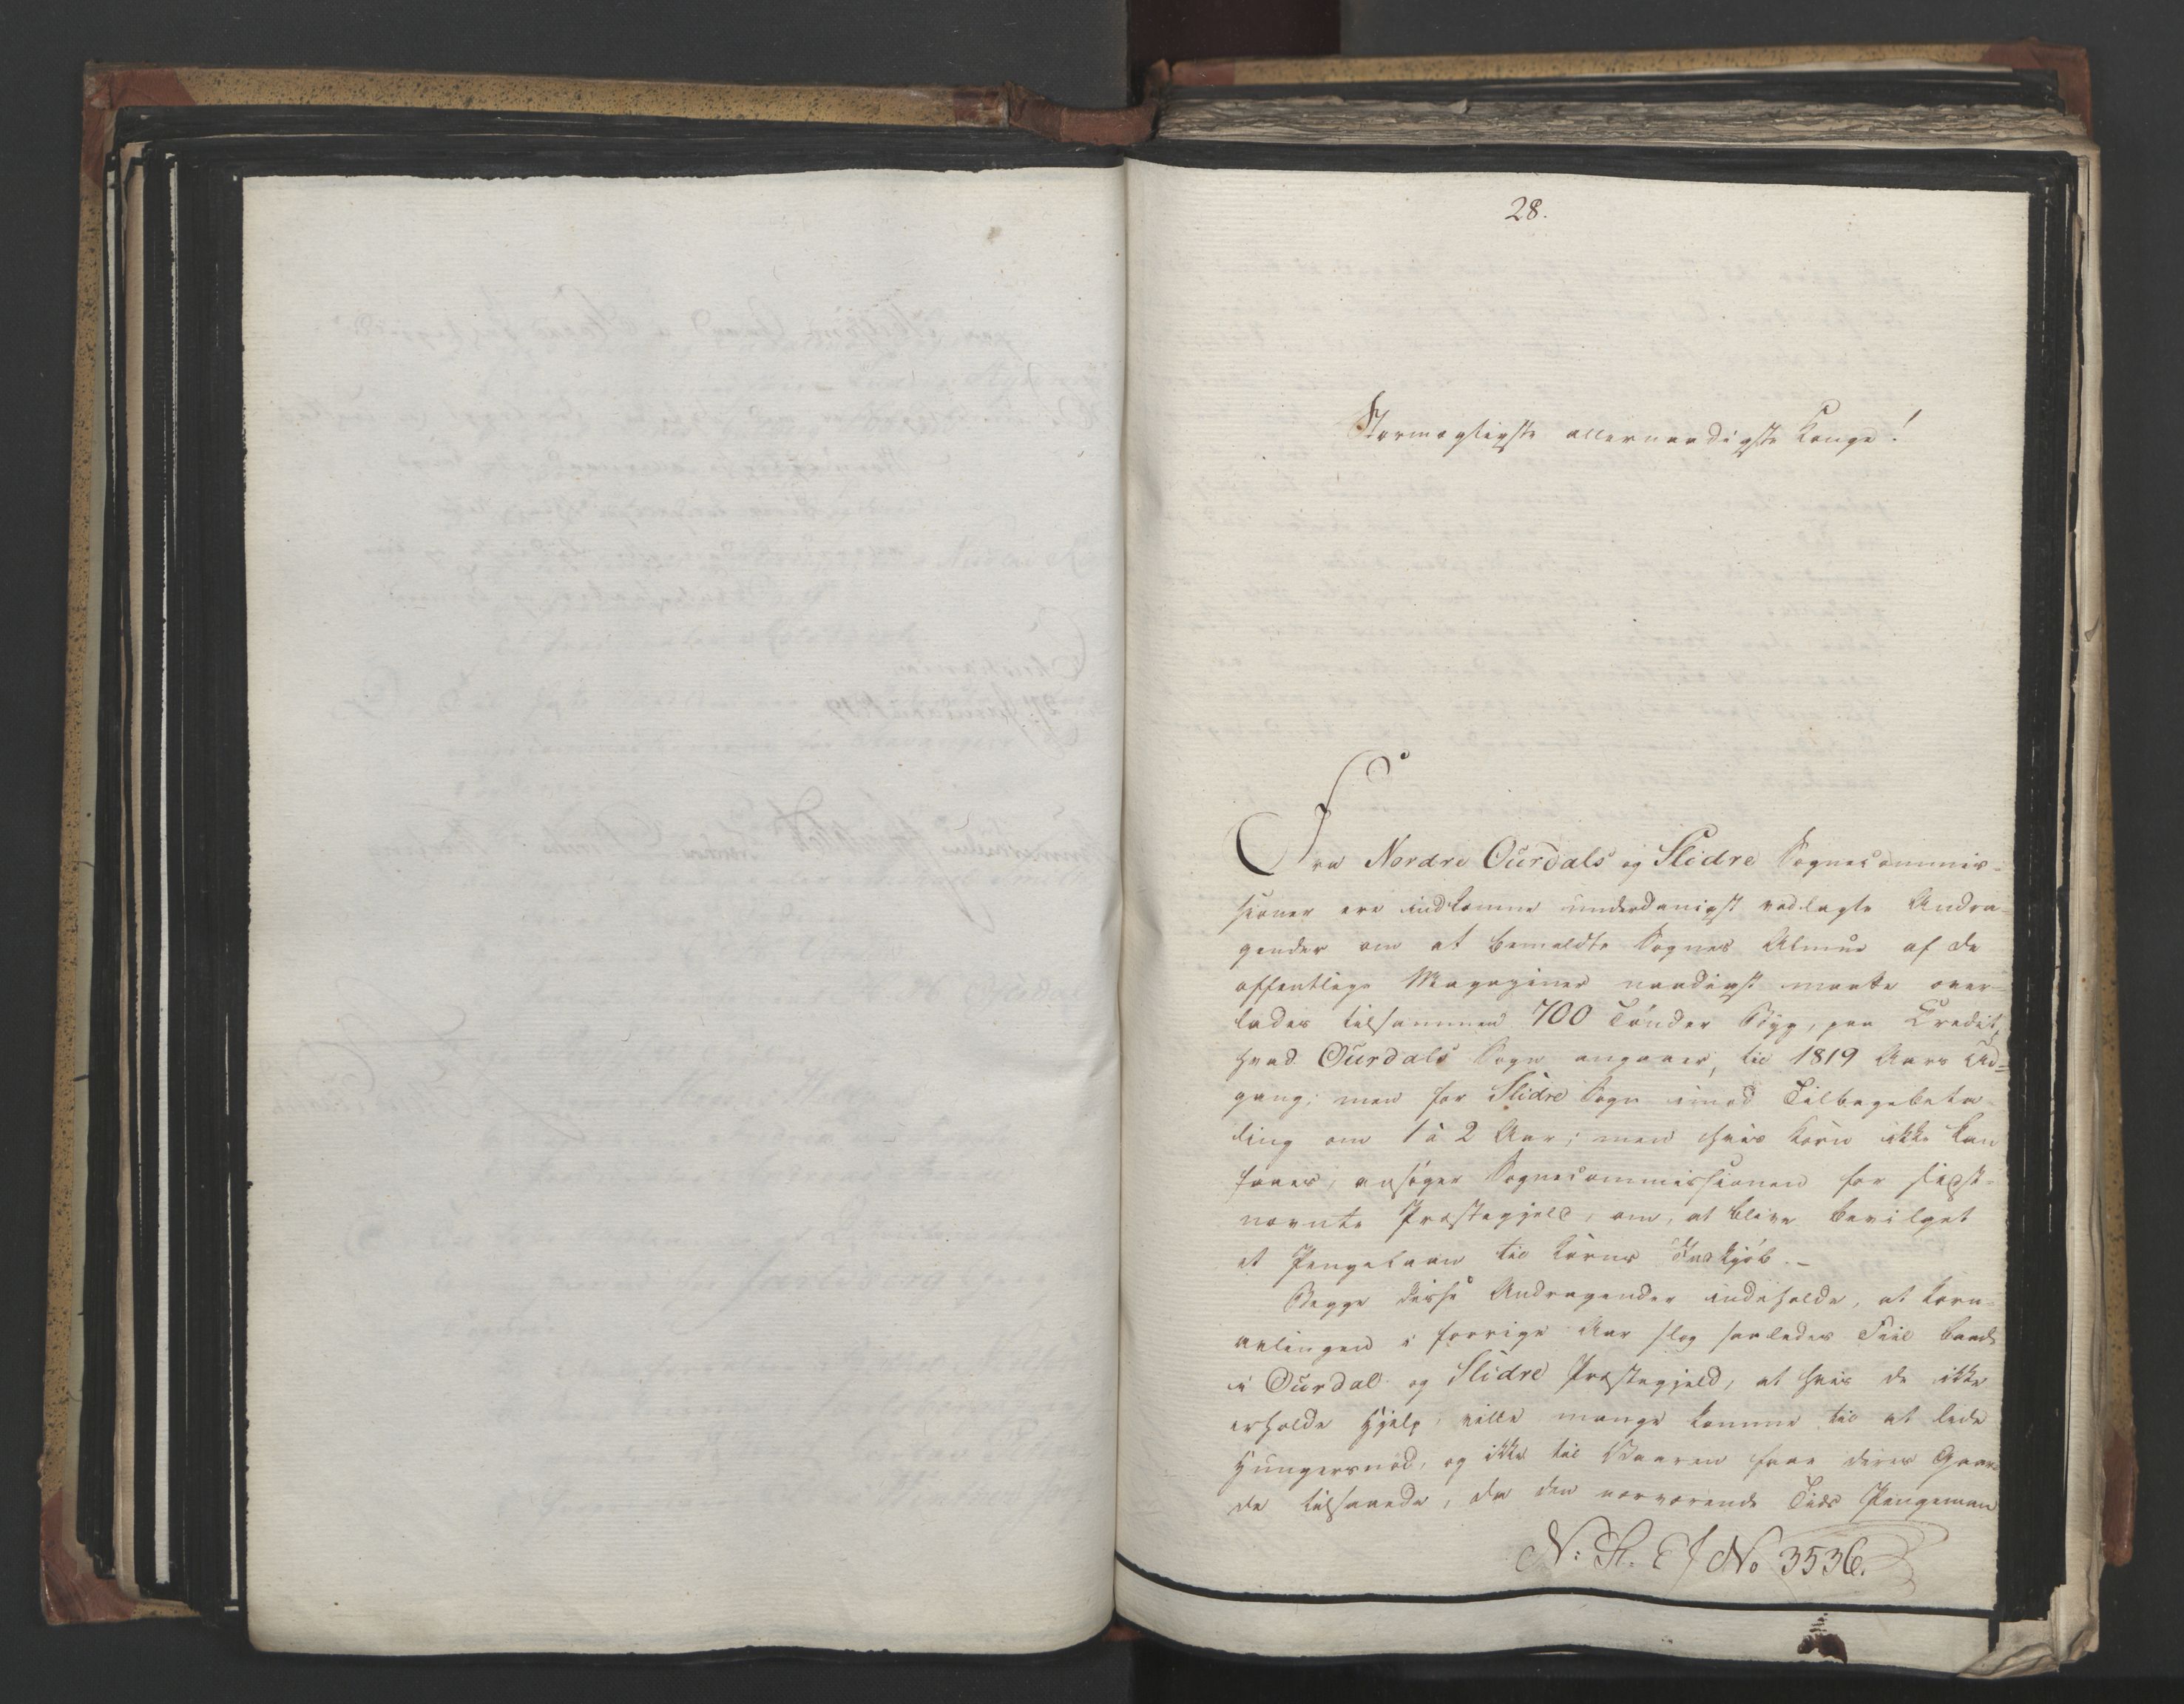 28.
Stormægtigste allernaadigste Konge!
Fra Nordre Ourdals og Slidre Sognecommis-
sioner ere indkomne underdanigst vedlagte Andra-
gender om at bemeldte Sognes Almue af de
offentlige Magaziner naadigst maatte over-
lades tilsammen 700 Tønder Byg, paa Credit,
hvad Ourdals Sogn angaaer, til 1819 Aars Ud-
gang; men for Slidre Sogn imod Tilbagebeta-
ling om 1 à 2 Aar; men hvis Korn ikke kan
faaes, ansøger Sognecommissionen for sidst-
nævnte Præstegjeld, om, at blive bevilget
et Pengelaan til Korns Indkjøb.-
Begge disse Andragender indeholde, at Korn-
avlingen i forrige Aar slog saaledes Feil baade
i Ourdal og Slidre Præstegjeld, at hvis de ikke
erholde Hjelp, ville mange komme til at lide
Hungersnød, og ikke til Vaaren faae deres Gaar-
de tilsaaede, da den nærværende Tids Pengeman
N: R. E J No 3536.